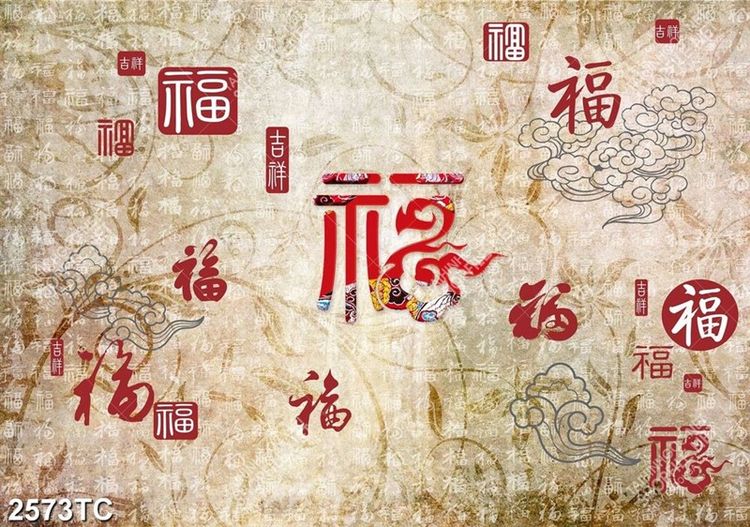 吉祥
福
福
吉祥
福
福
吉祥
福
福
福
吉祥
福
吉祥
福
福
吉祥
福
福
福
2573TC